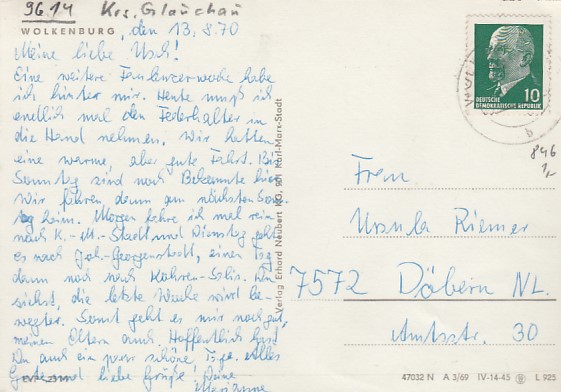 9614 Krs. Glauchau
WOLKENBURG, den 13.8.70
Meine liebe Usch!
Eine weitere Faulenzerwoche habe
ich hinter mir. Heute muß ich
endlich mal den Federhalter in
die Hand nehmen. Wir hatten
eine warme, aber gute Fahrt. Bis
Sonntag sind noch Bekannte hier.
Wir fahren dann am nächsten Sonn-
tag heim. Morgen fahre ich mal rein
nach K.-M.-Stadt und Dienstag geht
es nach Joh.-Georgenstadt, einen Tag
dann noch nach Kohren-Salis. Du
siehst, die letzte Woche wird be-
wegter. Sonst geht es mir noch gut,
meinen Eltern auch. Hoffentlich hast
Du auch ein paar schöne Tage. Alles
Gute und liebe Grüße! Deine
Marianne
Verlag Erhard Neubert KG, 901 Karl-Marx-Stadt
DEUTSCHE
DEMOKRATISCHE REPUBLIK
10
b
846
1,-
Frau
Ursula Riemer
7572 Döbern NL.
Amtsstr. 30
47032 N A 3/69 IV-14-45 L 925